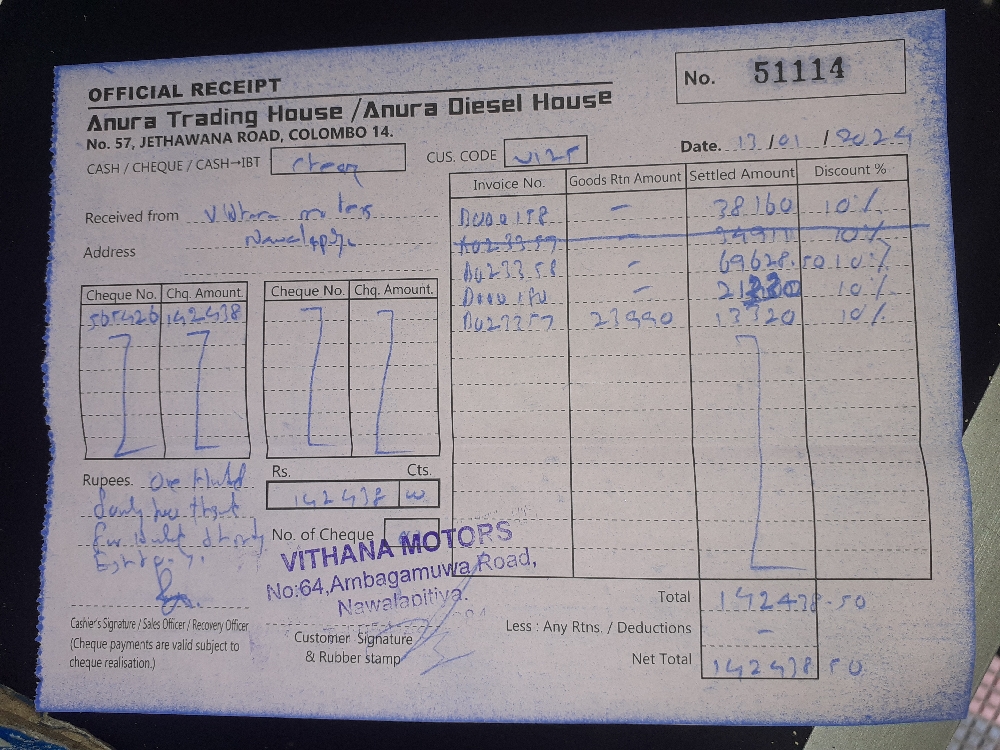 OFFICIAL RECEIPT
Anura Trading House / Anura Diesel House
No. 57, JETHAWANA ROAD, COLOMBO 14.
No. 51114
Date. 13 / 01 / 2024
CASH / CHEQUE / CASH→IBT
CUS. CODE
Received from
Address
Invoice No. Goods Rtn Amount Settled Amount Discount %
– 38160 10%
A023357 – 10%
A023358 – 69628.50 10%
– 10%
A023357 23990 13320 10%
Cheque No. Chq. Amount. Cheque No. Chq. Amount.
565426 142438
Rupees. One
Rs. Cts.
142438
No. of Cheque
VITHANA MOTORS
No:64, Ambagamuwa Road,
Nawalapitiya.
Cashier's Signature / Sales Officer / Recovery Officer
(Cheque payments are valid subject to
cheque realisation.)
Customer Signature
& Rubber stamp
Total 142438.50
Less : Any Rtns. / Deductions –
Net Total 142438 50